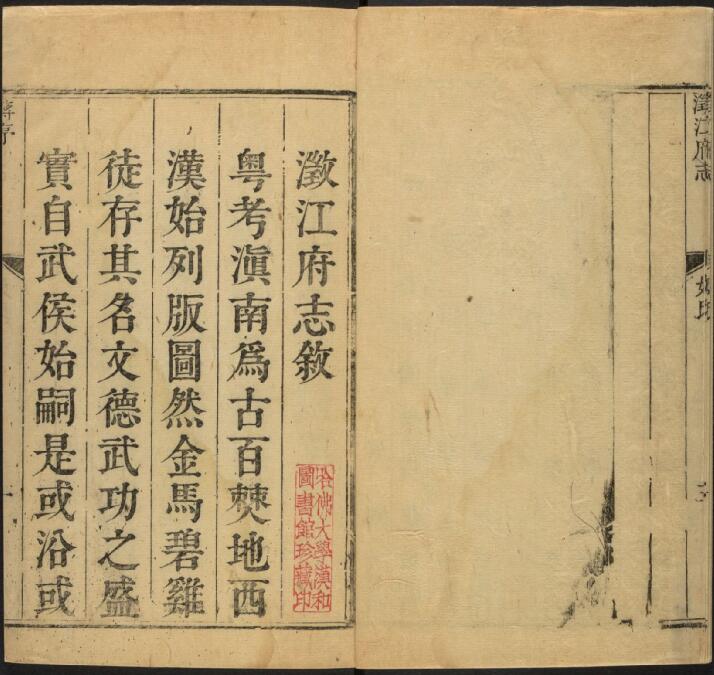 澂江府志
姓氏
澂江府志敘
粤考滇南爲古百僰地西
漢始列版圖然金馬碧雞
徒存其名文德武功之盛
實自武侯始嗣是或沿或
哈佛大學漢和
圖書館珍藏印
序